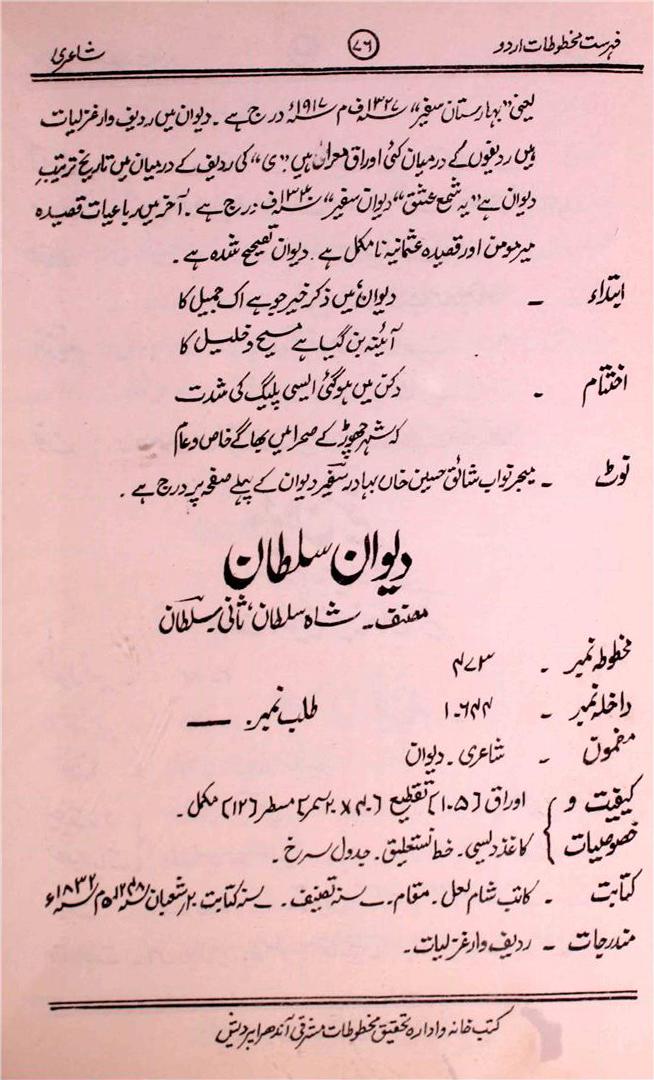 فہرست مخطوطات اردو ۷۶ شاعری
یعنی "بہارستان سفیر" ۱۳۲۷ سنہ ف م ۱۹۱۷ سنہ ء درج ہے ۔ دیوان میں ردیف وار غزلیات
ہیں ردیفوں کے درمیان کئی اوراق معرا ہیں "ی" کی ردیف کے درمیان میں تاریخ ترتیب
دیوان ہے "یہ شمع عشق" "دیوان سفیر" سنہ ف درج ہے ۔ آخر میں رباعیات قصیدہ
میر مومن اور قصیدہ عثمانیہ نامکمل ہے ۔ دیوان تصحیح شدہ ہے ۔
ابتداء ۔ دیواں میں ذکر خیر جو ہے اک جمیل کا
آئینہ بن گیا ہے مسیح و خلیل کا
اختتام ۔ دکن میں ہو گئی ایسی پلیگ کی شدت
کہ شہر چھوڑ کے صحرا میں بھاگے خاص و عام
نوٹ ۔ میجر نواب شائق حسین خاں بہادر سفیر دیوان کے پہلے صفحہ پر درج ہے ۔
دیوان سلطان
مصنف ۔ شاہ سلطان ثانی سلطان
مخطوطہ نمبر ۔ ۴۷۳
داخلہ نمبر ۔ ۱۰۶۴۴ طلب نمبر ۔ ——
مضمون ۔ شاعری ۔ دیوان
کیفیت و } اوراق (۱۰۵) تقطیع (۲۰×۴۰۶ سمر) مسطر (۱۲) مکمل ۔
خصوصیات } کاغذ دیسی ۔ خط نستعلیق ۔ جدول سرخ ۔
کتابت ۔ کاتب شام لعل ۔ مقام ۔ — سنہ تصنیف ۔ — سنہ کتابت ۲۰ر شعبان ۱۲۴۸ سنہ ھ م ۱۸۳۲ سنہ ء
مندرجات ۔ ردیف وار غزلیات ۔
کتب خانہ و ادارہ تحقیق مخطوطات مشرقی آندھرا پردیش